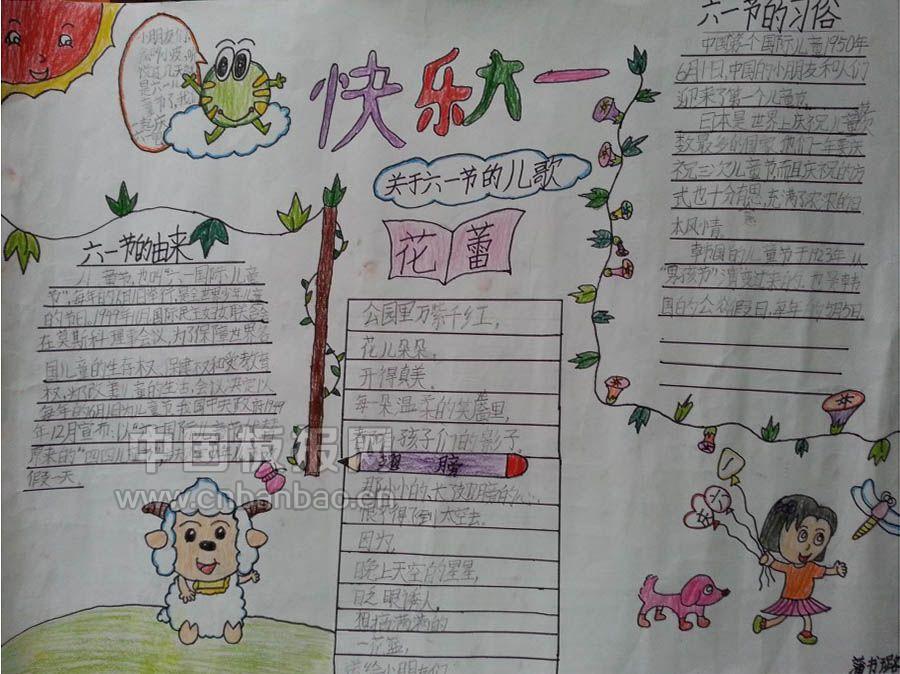 小朋友们
快乐六一
关于六一节的儿歌
花蕾
六一节的由来
儿童节，也叫“六一国际儿童
节”，每年的6月1日举行，是全世界少年儿童
的节日。1949年11月国际民主妇女联合会
在莫斯科理事会议，为了保障世界各
国儿童的生存权、保健权和受教育
权，为了改善儿童的生活，会议决定以
每年的6月1日为儿童节。我国中央政府1949
年12月宣布，以“六一国际儿童节”代替
原来的“四四儿童节”
假一天
公园里万紫千红，
花儿朵朵，
开得真美。
每一朵温柔的笑靥里，
都有孩子们的影子。
翅膀
那小小的
恨不得飞到太空去。
因为，
晚上天空的星星，
眨眼诱人，
想摘满满的
一花篮，
送给小朋友们
六一节的习俗
中国第一个国际儿童1950年
6月1日，中国的小朋友和人们
迎来了第一个儿童节。
日本是世界上庆祝儿童节
数最多的国家，他们一年要庆
祝三次儿童节而且庆祝的方
式也十分有意思，充满了浓浓的日
本风情。
韩国的儿童节于1923年从
“男孩节”演变过来的，也是韩
国的公众假日，每年的5月5日
六一
蒲书璐
中国板报网
www.cnbanbao.cn